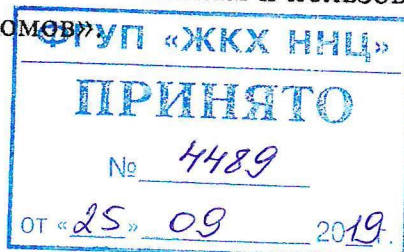 омов».
ФГУП «ЖКХ ННЦ»
ПРИНЯТО
№ 4489
от «25» 09 2019г.